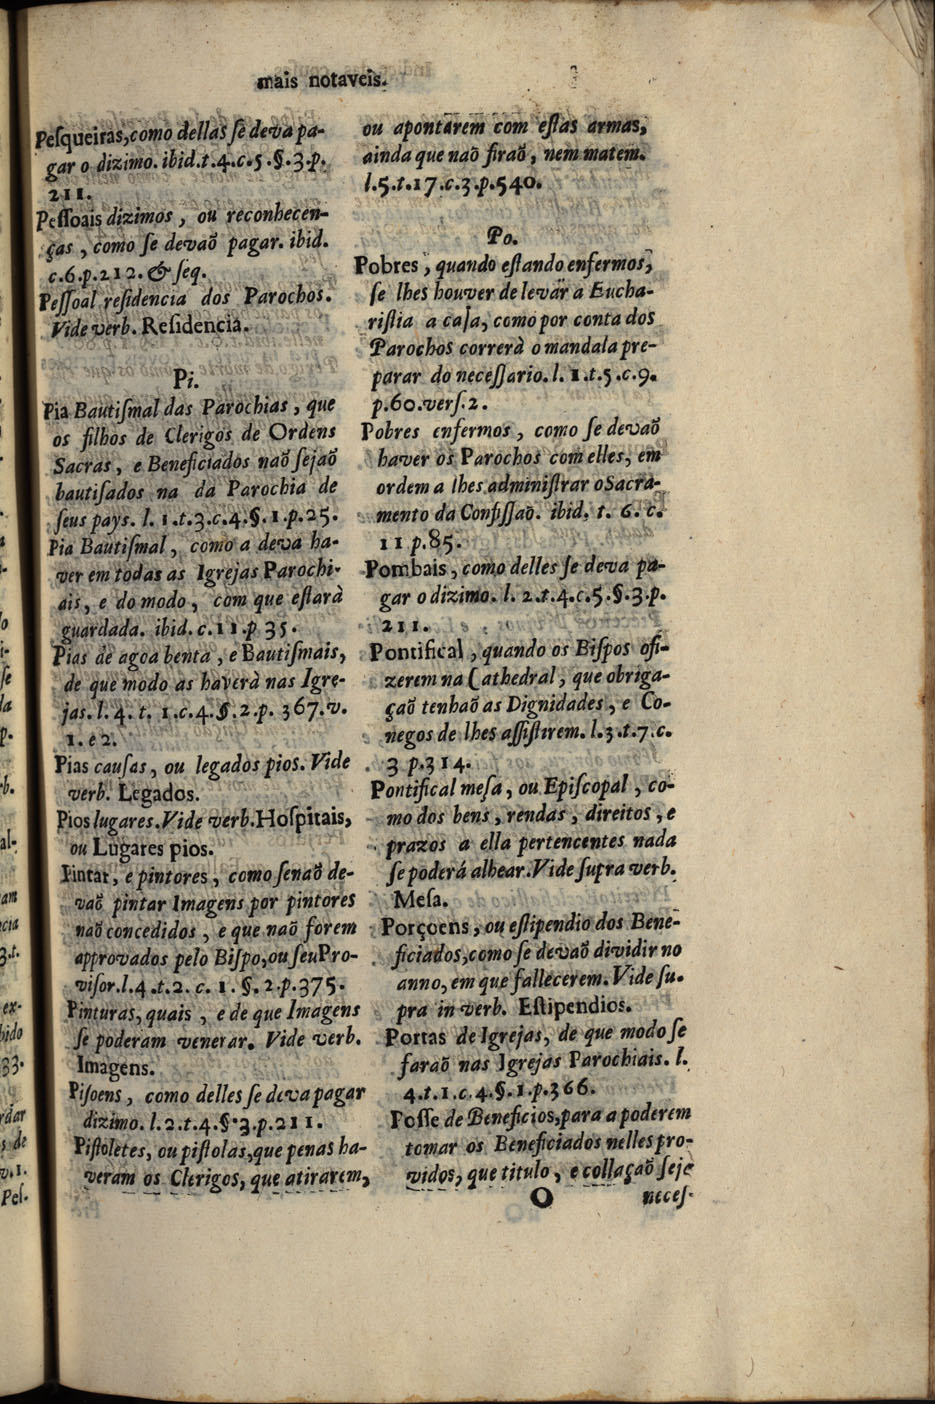 mais notaveis.
Peſqueiras, como dellas ſe deva pa-
gar o dizimo. ibid. t. 4. c. 5. §. 3. p.
211.
Peſſoais dizimos, ou reconhecen-
ças, como ſe devaõ pagar. ibid.
c. 6. p. 212. & ſeq.
Peſſoal reſidencia dos Parochos.
Vide verb. Reſidencia.
Pi.
Pia Bautiſmal das Parochias, que
os filhos de Clerigos de Ordens
Sacras, e Beneficiados naõ ſejaõ
bautiſados na da Parochia de
ſeus pays. l. 1. t. 3. c. 4. §. 1. p. 25.
Pia Bautiſmal, como a deva ha-
ver em todas as Igrejas Parochi-
ais, e do modo, com que eſtarà
guardada. ibid. c. 11. p 35.
Pias de agoa benta, e Bautiſmais,
de que modo as haverà nas Igre-
jas. l. 4. t. 1. c. 4. §. 2. p. 367. v.
1. e 2.
Pias cauſas, ou legados pios. Vide
verb. Legados.
Pios lugares. Vide verb. Hoſpitais,
ou Lugares pios.
Pintar, e pintores, como ſenaõ de-
vaõ pintar Imagens por pintores
naõ concedidos, e que naõ forem
approvados pelo Biſpo, ou ſeu Pro-
viſor. l. 4. t. 2. c. 1. §. 2. p. 375.
Pinturas, quais, e de que Imagens
ſe poderam venerar. Vide verb.
Imagens.
Piſoens, como delles ſe deva pagar
dizimo. l. 2. t. 4. §. 3. p. 211.
Piſtoletes, ou piſtolas, que penas ha-
veram os Clerigos, que atirarem,
ou apontarem com eſtas armas,
ainda que naõ firaõ, nem matem.
l. 5. t. 17. c. 3. p. 540.
Po.
Pobres, quando eſtando enfermos,
ſe lhes houver de levar a Eucha-
riſtia a caſa, como por conta dos
Parochos correrà o mandala pre-
parar do neceſſario. l. 1. t. 5. c. 9.
p. 60. verſ. 2.
Pobres enfermos, como ſe devaõ
haver os Parochos com elles, em
ordem a lhes adminiſtrar o Sacra-
mento da Confiſſaõ. ibid. t. 6. c.
11 p. 85.
Pombais, como delles ſe deva pa-
gar o dizimo. l. 2. t. 4. c. 5. §. 3. p.
211.
Pontifical, quando os Biſpos o fi-
zerem na Cathedral, que obriga-
çaõ tenhaõ as Dignidades, e Co-
negos de lhes aſſiſtirem. l. 3. t. 7. c.
3 p. 314.
Pontifical meſa, ou Epiſcopal, co-
mo dos bens, rendas, direitos, e
prazos a ella pertencentes nada
ſe poderá alhear. Vide ſupra verb.
Meſa.
Porçoens, ou eſtipendio dos Bene-
ficiados, como ſe devaõ dividir no
anno, em que fallecerem. Vide ſu-
pra in verb. Eſtipendios.
Portas de Igrejas, de que modo ſe
faraõ nas Igrejas Parochiais. l.
4. t. 1. c. 4. §. 1. p. 366.
Poſſe de Beneficios, para a poderem
tomar os Beneficiados nelles pro-
vidos, que titulo, e collaçaõ ſeje
O neceſ-